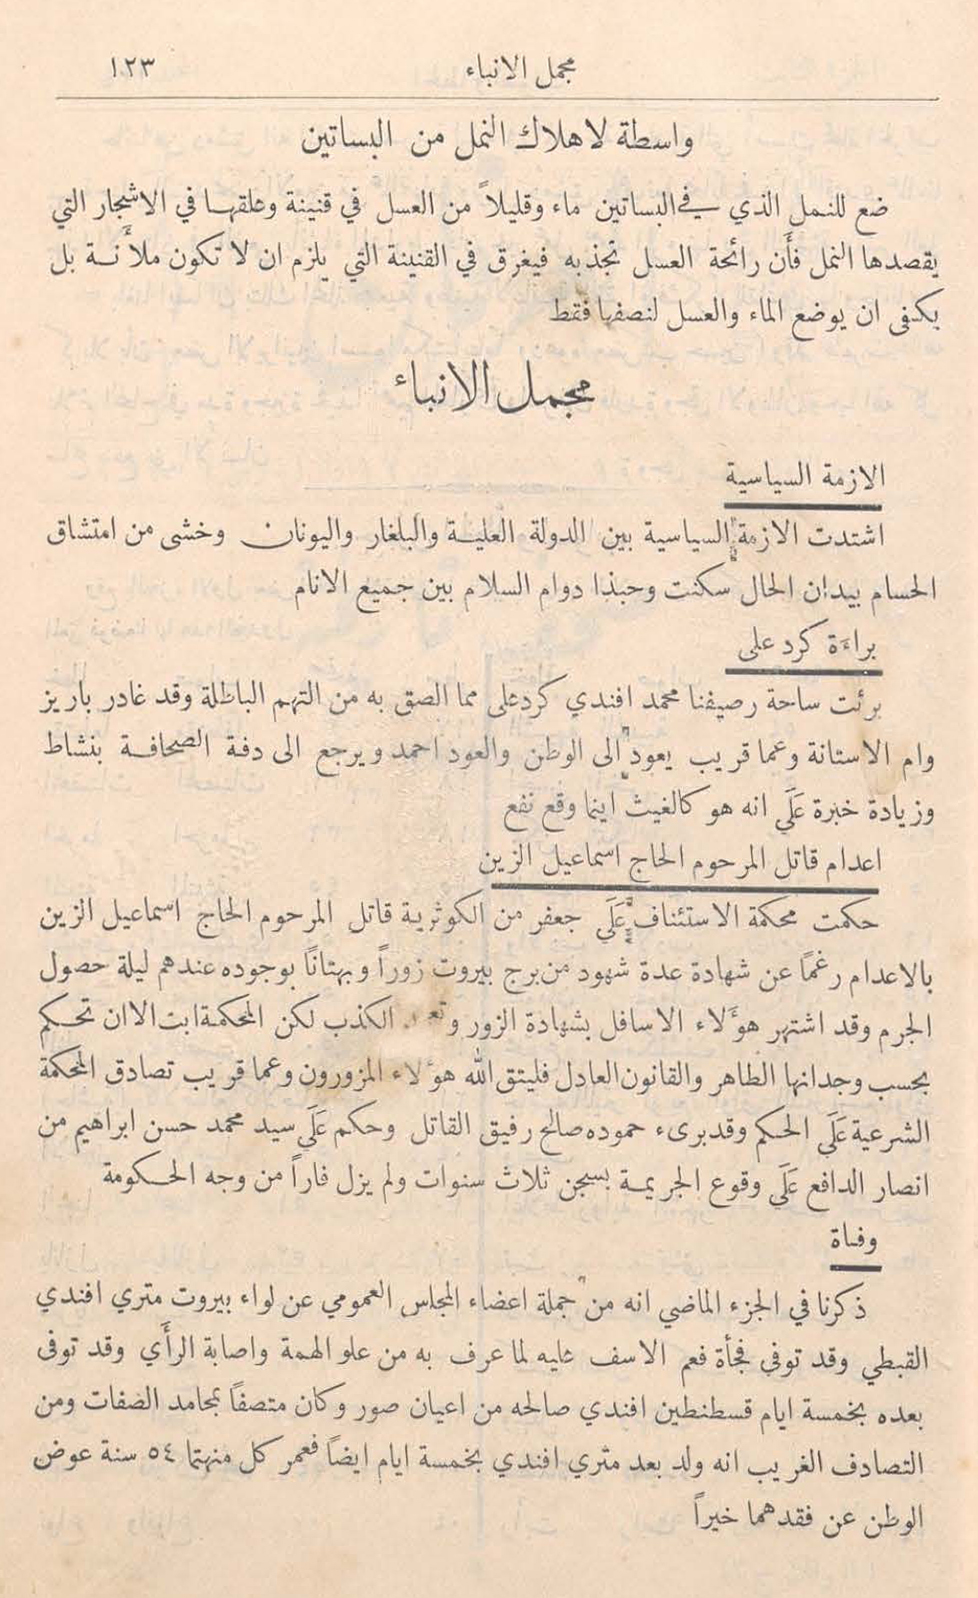 مجمل الانباء ١٢٣
واسطة لاهلاك النمل من البساتين
ضع للنمل الذي في البساتين ماء وقليلاً من العسل في قنينة وعلقها في الاشجار التي
يقصدها النمل فأن رائحة العسل تجذبه فيغرق في القنينة التي يلزم ان لا تكون ملأنة بل
يكفى ان يوضع الماء والعسل لنصفها فقط
مجمل الانباء
الازمة السياسية
اشتدت الازمة السياسية بين الدولة العلية والبلغار واليونان وخشى من امتشاق
الحسام بيد ان الحال سكنت وحبذا دوام السلام بين جميع الانام
براءة كرد على
برئت ساحة رصيفنا محمد افندي كردعلى مما الصق به من التهم الباطلة وقد غادر باريز
وام الاستانة وعما قريب يعود الى الوطن والعود احمد ويرجع الى دفة الصحافة بنشاط
وزيادة خبرة عَلَى انه هو كالغيث اينما وقع نفع
اعدام قاتل المرحوم الحاج اسماعيل الزين
حكمت محكمة الاستئناف عَلَى جعفر من الكوثرية قاتل المرحوم الحاج اسماعيل الزين
بالاعدام رغماً عن شهادة عدة شهود من برج بيروت زوراً وبهتاناً بوجوده عندهم ليلة حصول
الجرم وقد اشتهر هؤلاء الاسافل بشهادة الزور الكذب لكن المحكمة ابت الا ان تحكم
بحسب وجدانها الطاهر والقانون العادل فليتق الله هؤلاء المزورون وعما قريب تصادق المحكمة
الشرعية عَلَى الحكم وقد برىء حموده صالح رفيق القاتل وحكم عَلَى سيد محمد حسن ابراهيم من
انصار الدافع عَلَى وقوع الجريمة بسجن ثلاث سنوات ولم يزل فاراً من وجه الحكومة
وفاة
ذكرنا في الجزء الماضي انه من جملة اعضاء المجلس العمومي عن لواء بيروت متري افندي
القبطي وقد توفي فجأة فعم الاسف عليه لما عرف به من علو الهمة واصابة الرأي وقد توفى
بعده بخمسة ايام قسطنطين افندي صالحه من اعيان صور وكان متصفاً بمحامد الصفات ومن
التصادف الغريب انه ولد بعد متري افندي بخمسة ايام ايضاً فعمر كل منهتما ٥٤ سنة عوض
الوطن عن فقدهما خيراً